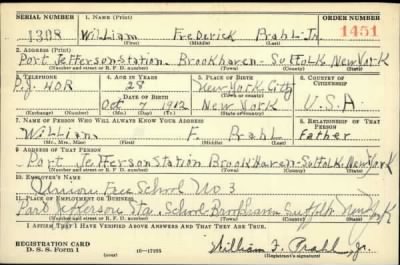 SERIAL NUMBER 1. NAME (Print) ORDER NUMBER
1308 William Frederick Prahl Jr. 1451
(First) (Middle) (Last)
2. ADDRESS (Print)
Port Jefferson Station Brookhaven - Suffolk New York
(Number and street or R. F. D. number) (Town) (County) (State)
3. TELEPHONE 4. AGE IN YEARS 5. PLACE OF BIRTH 6. COUNTRY OF CITIZENSHIP
P.J. 28 New York City
DATE OF BIRTH
Oct 7 1912 New York U.S.A.
(Exchange) (Number) (Mo.) (Day) (Yr.) (State or country)
7. NAME OF PERSON WHO WILL ALWAYS KNOW YOUR ADDRESS 8. RELATIONSHIP OF THAT PERSON
William F. Prahl Father
(Mr., Mrs., Miss) (First) (Middle) (Last)
9. ADDRESS OF THAT PERSON
Port Jefferson Station Brookhaven - Suffolk New York
(Number and street or R. F. D. number) (Town) (County) (State)
10. EMPLOYER'S NAME
Union Free School No. 3
11. PLACE OF EMPLOYMENT OR BUSINESS
Port Jefferson Sta. School Brookhaven Suffolk New York
(Number and street or R. F. D. number) (Town) (County) (State)
I AFFIRM THAT I HAVE VERIFIED ABOVE ANSWERS AND THAT THEY ARE TRUE.
REGISTRATION CARD
D. S. S. Form 1 16-17105 William F. Prahl Jr.
(Registrant's signature)